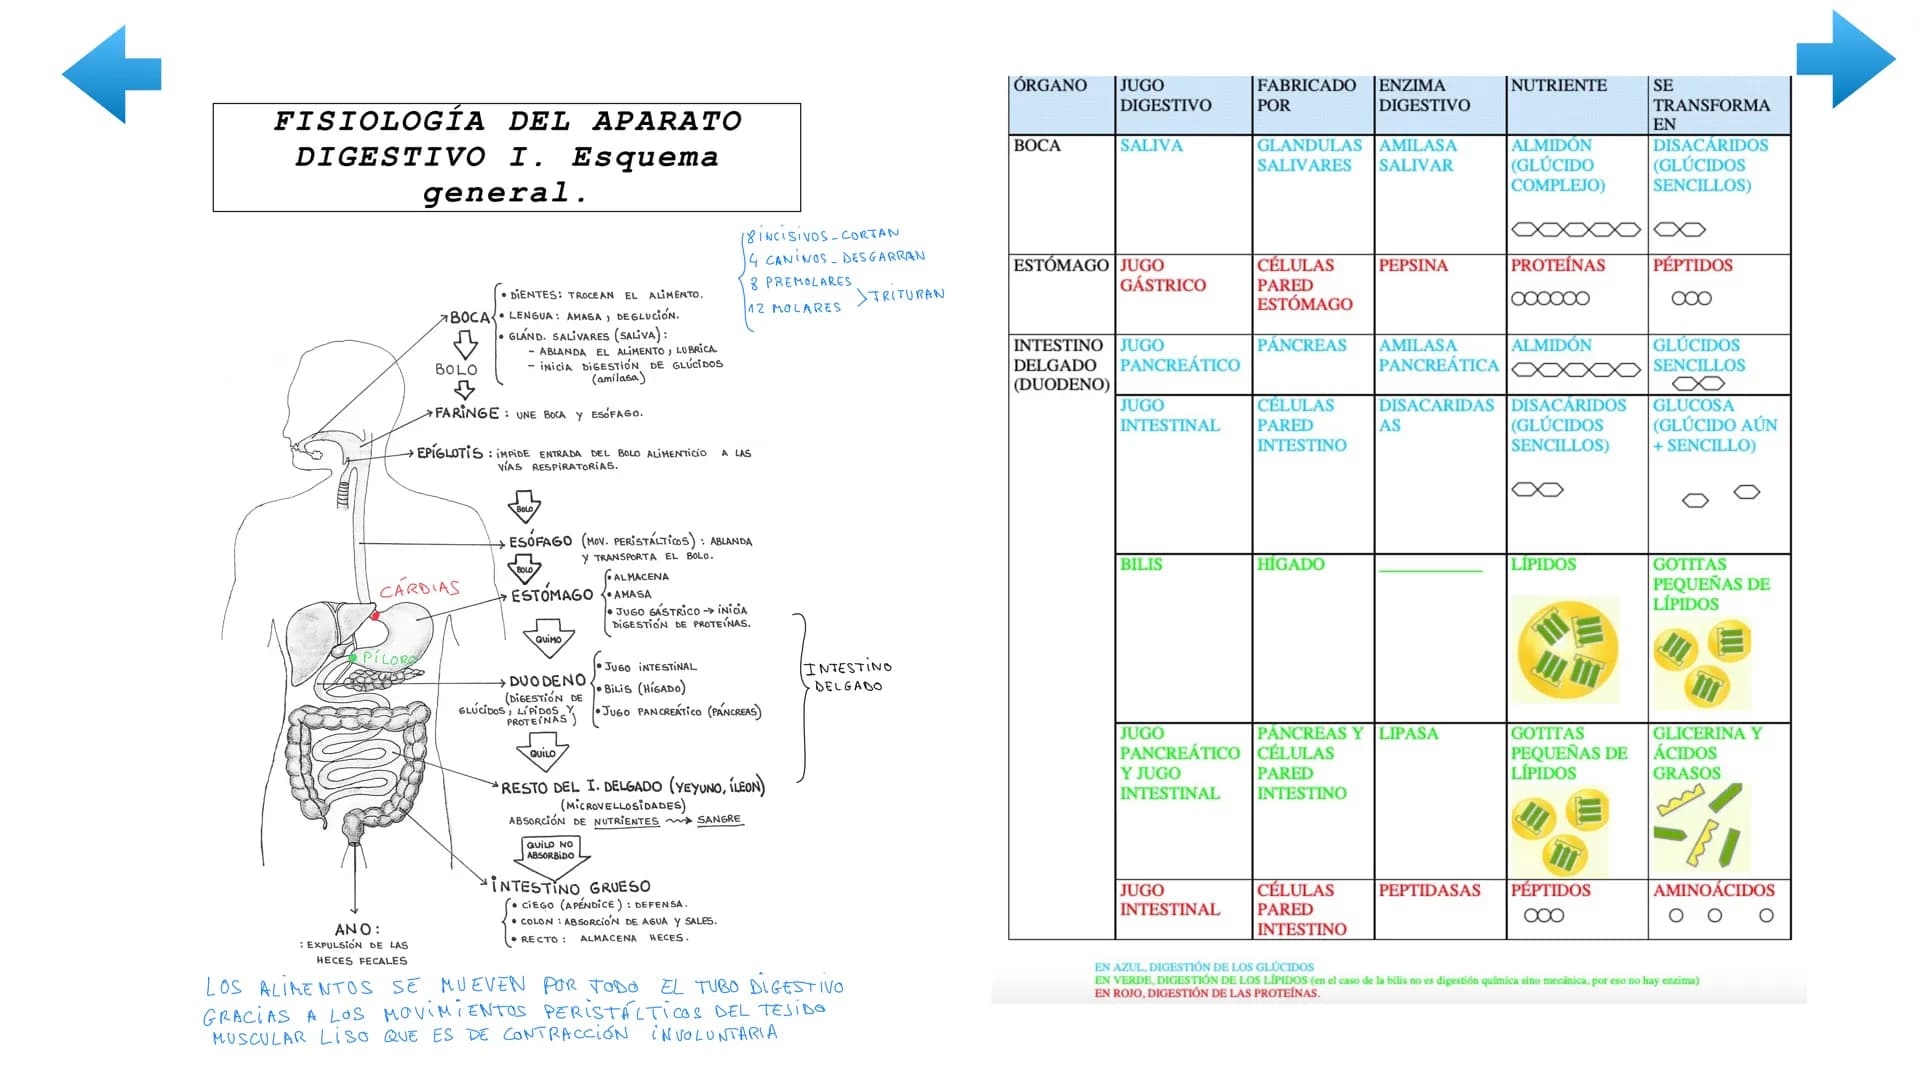 FISIOLOGÍA DEL APARATO
DIGESTIVO I. Esquema
general.
8 INCISIVOS_CORTAN
4 CANINOS_DESGARRAN
8 PREMOLARES
12 MOLARES
TRITURAN
BOCA
• DIENTES: TROCEAN EL ALIMENTO.
• LENGUA: AMASA, DEGLUCIÓN.
• GLÁND. SALIVARES (SALIVA):
- ABLANDA EL ALIMENTO, LUBRICA.
- INICIA DIGESTIÓN DE GLÚCIDOS
(amilasa)
BOLO
FARINGE: UNE BOCA Y ESÓFAGO.
EPÍGLOTIS: IMPIDE ENTRADA DEL BOLO ALIMENTICIO A LAS
VÍAS RESPIRATORIAS.
BOLO
ESÓFAGO (MOV. PERISTÁLTICOS): ABLANDA
Y TRANSPORTA EL BOLO.
BOLO
CÁRDIAS
ESTÓMAGO
• ALMACENA
• AMASA
• JUGO GÁSTRICO → INICIA
DIGESTIÓN DE PROTEÍNAS.
QUIMO
PÍLORO
DUODENO
(DIGESTIÓN DE
GLÚCIDOS, LÍPIDOS Y
PROTEÍNAS)
• JUGO INTESTINAL
• BILIS (HÍGADO)
• JUGO PANCREÁTICO (PÁNCREAS)
INTESTINO
DELGADO
QUILO
RESTO DEL I. DELGADO (YEYUNO, ÍLEON)
(MICROVELLOSIDADES)
ABSORCIÓN DE NUTRIENTES → SANGRE
QUILO NO
ABSORBIDO
INTESTINO GRUESO
• CIEGO (APÉNDICE): DEFENSA.
• COLON: ABSORCIÓN DE AGUA Y SALES.
• RECTO: ALMACENA HECES.
ANO:
: EXPULSIÓN DE LAS
HECES FECALES
LOS ALIMENTOS SE MUEVEN POR TODO EL TUBO DIGESTIVO
GRACIAS A LOS MOVIMIENTOS PERISTÁLTICOS DEL TEJIDO
MUSCULAR LISO QUE ES DE CONTRACCIÓN INVOLUNTARIA
ÓRGANO
JUGO
DIGESTIVO
FABRICADO
POR
ENZIMA
DIGESTIVO
NUTRIENTE
SE
TRANSFORMA
EN
BOCA
SALIVA
GLANDULAS
SALIVARES
AMILASA
SALIVAR
ALMIDÓN
(GLÚCIDO
COMPLEJO)
DISACÁRIDOS
(GLÚCIDOS
SENCILLOS)
ESTÓMAGO
JUGO
GÁSTRICO
CÉLULAS
PARED
ESTÓMAGO
PEPSINA
PROTEÍNAS
PÉPTIDOS
INTESTINO
DELGADO
(DUODENO)
JUGO
PANCREÁTICO
PÁNCREAS
AMILASA
PANCREÁTICA
ALMIDÓN
GLÚCIDOS
SENCILLOS
JUGO
INTESTINAL
CÉLULAS
PARED
INTESTINO
DISACARIDAS
AS
DISACÁRIDOS
(GLÚCIDOS
SENCILLOS)
GLUCOSA
(GLÚCIDO AÚN
+ SENCILLO)
BILIS
HÍGADO
LÍPIDOS
GOTITAS
PEQUEÑAS DE
LÍPIDOS
JUGO
PANCREÁTICO
Y JUGO
INTESTINAL
PÁNCREAS Y
CÉLULAS
PARED
INTESTINO
LIPASA
GOTITAS
PEQUEÑAS DE
LÍPIDOS
GLICERINA Y
ÁCIDOS
GRASOS
JUGO
INTESTINAL
CÉLULAS
PARED
INTESTINO
PEPTIDASAS
PÉPTIDOS
AMINOÁCIDOS
EN AZUL, DIGESTIÓN DE LOS GLÚCIDOS
EN VERDE, DIGESTIÓN DE LOS LÍPIDOS (en el caso de la bilis no es digestión química sino mecánica, por eso no hay enzima)
EN ROJO, DIGESTIÓN DE LAS PROTEÍNAS.